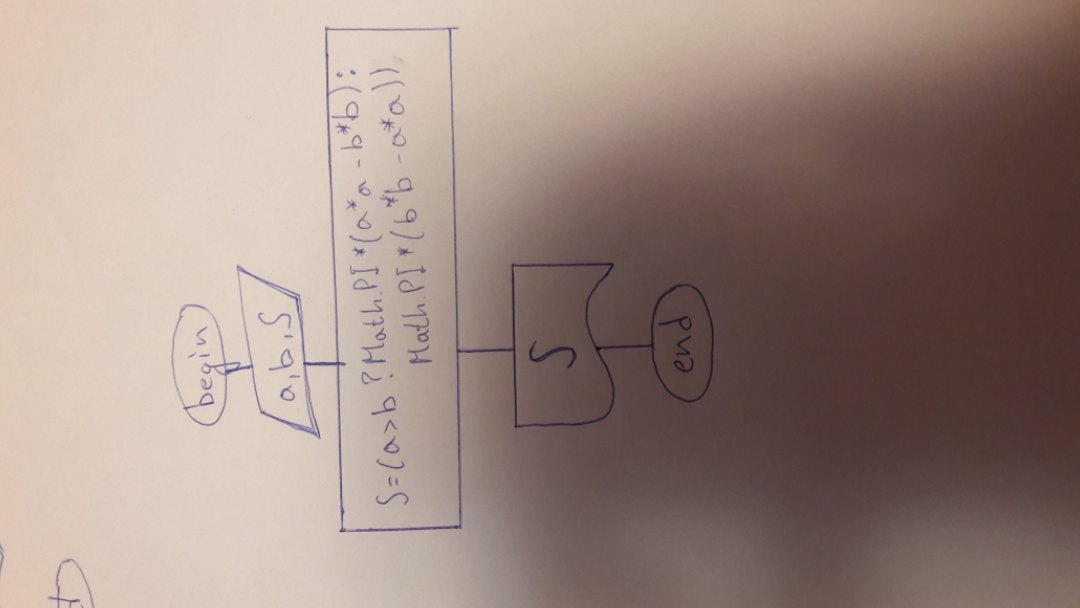 begin
a,b,S
S=(a>b ? Math.PI*(a*a - b*b):
Math.PI*(b*b - a*a))
S
end